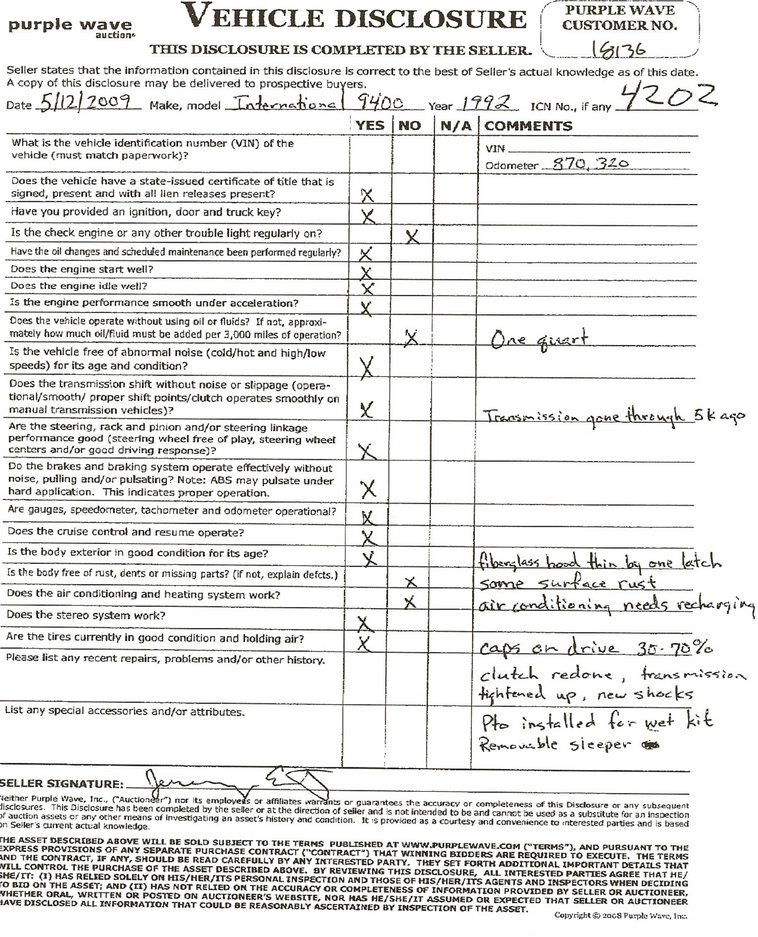 purple wave
auction®
VEHICLE DISCLOSURE
PURPLE WAVE
CUSTOMER NO.
18136
THIS DISCLOSURE IS COMPLETED BY THE SELLER.
Seller states that the information contained in this disclosure is correct to the best of Seller's actual knowledge as of this date.
A copy of this disclosure may be delivered to prospective buyers.
Date 5/12/2009 Make, model International 9400 Year 1992 ICN No., if any 4202
YES NO N/A COMMENTS
What is the vehicle identification number (VIN) of the
vehicle (must match paperwork)?
VIN
Odometer 870,320
Does the vehicle have a state-issued certificate of title that is
signed, present and with all lien releases present? X
Have you provided an ignition, door and truck key? X
Is the check engine or any other trouble light regularly on? X
Have the oil changes and scheduled maintenance been performed regularly? X
Does the engine start well? X
Does the engine idle well? X
Is the engine performance smooth under acceleration? X
Does the vehicle operate without using oil or fluids? If not, approxi-
mately how much oil/fluid must be added per 3,000 miles of operation? X One quart
Is the vehicle free of abnormal noise (cold/hot and high/low
speeds) for its age and condition? X
Does the transmission shift without noise or slippage (opera-
tional/smooth/ proper shift points/clutch operates smoothly on
manual transmission vehicles)? X Transmission gone through 5k ago
Are the steering, rack and pinion and/or steering linkage
performance good (steering wheel free of play, steering wheel
centers and/or good driving response)? X
Do the brakes and braking system operate effectively without
noise, pulling and/or pulsating? Note: ABS may pulsate under
hard application. This indicates proper operation. X
Are gauges, speedometer, tachometer and odometer operational? X
Does the cruise control and resume operate? X
Is the body exterior in good condition for its age? X fiberglass hood thin by one latch
Is the body free of rust, dents or missing parts? (if not, explain defcts.) X some surface rust
Does the air conditioning and heating system work? X air conditioning needs recharging
Does the stereo system work? X
Are the tires currently in good condition and holding air? X caps on drive 30-70%
Please list any recent repairs, problems and/or other history.
clutch redone, transmission
tightened up, new shocks
List any special accessories and/or attributes.
Pto installed for wet kit
Removable sleeper
SELLER SIGNATURE:
Neither Purple Wave, Inc., ("Auctioneer") nor its employees or affiliates warrants or guarantees the accuracy or completeness of this Disclosure or any subsequent
disclosures. This Disclosure has been completed by the seller or at the direction of seller and is not intended to be and cannot be used as a substitute for an inspection
of auction assets or any other means of investigating an asset's history and condition. It is provided as a courtesy and convenience to interested parties and is based
on Seller's current actual knowledge.
THE ASSET DESCRIBED ABOVE WILL BE SOLD SUBJECT TO THE TERMS PUBLISHED AT WWW.PURPLEWAVE.COM ("TERMS"), AND PURSUANT TO THE
EXPRESS PROVISIONS OF ANY SEPARATE PURCHASE CONTRACT ("CONTRACT") THAT WINNING BIDDERS ARE REQUIRED TO EXECUTE. THE TERMS
AND THE CONTRACT, IF ANY, SHOULD BE READ CAREFULLY BY ANY INTERESTED PARTY. THEY SET FORTH ADDITIONAL IMPORTANT DETAILS THAT
WILL CONTROL THE PURCHASE OF THE ASSET DESCRIBED ABOVE. BY REVIEWING THIS DISCLOSURE, ALL INTERESTED PARTIES AGREE THAT HE/
SHE/IT: (I) HAS RELIED SOLELY ON HIS/HER/ITS PERSONAL INSPECTION AND THOSE OF HIS/HER/ITS AGENTS AND INSPECTORS WHEN DECIDING
TO BID ON THE ASSET; AND (II) HAS NOT RELIED ON THE ACCURACY OR COMPLETENESS OF INFORMATION PROVIDED BY SELLER OR AUCTIONEER,
WHETHER ORAL, WRITTEN OR POSTED ON AUCTIONEER'S WEBSITE, NOR HAS HE/SHE/IT ASSUMED OR EXPECTED THAT SELLER OR AUCTIONEER
HAVE DISCLOSED ALL INFORMATION THAT COULD BE REASONABLY ASCERTAINED BY INSPECTION OF THE ASSET.
Copyright © 2008 Purple Wave, Inc.